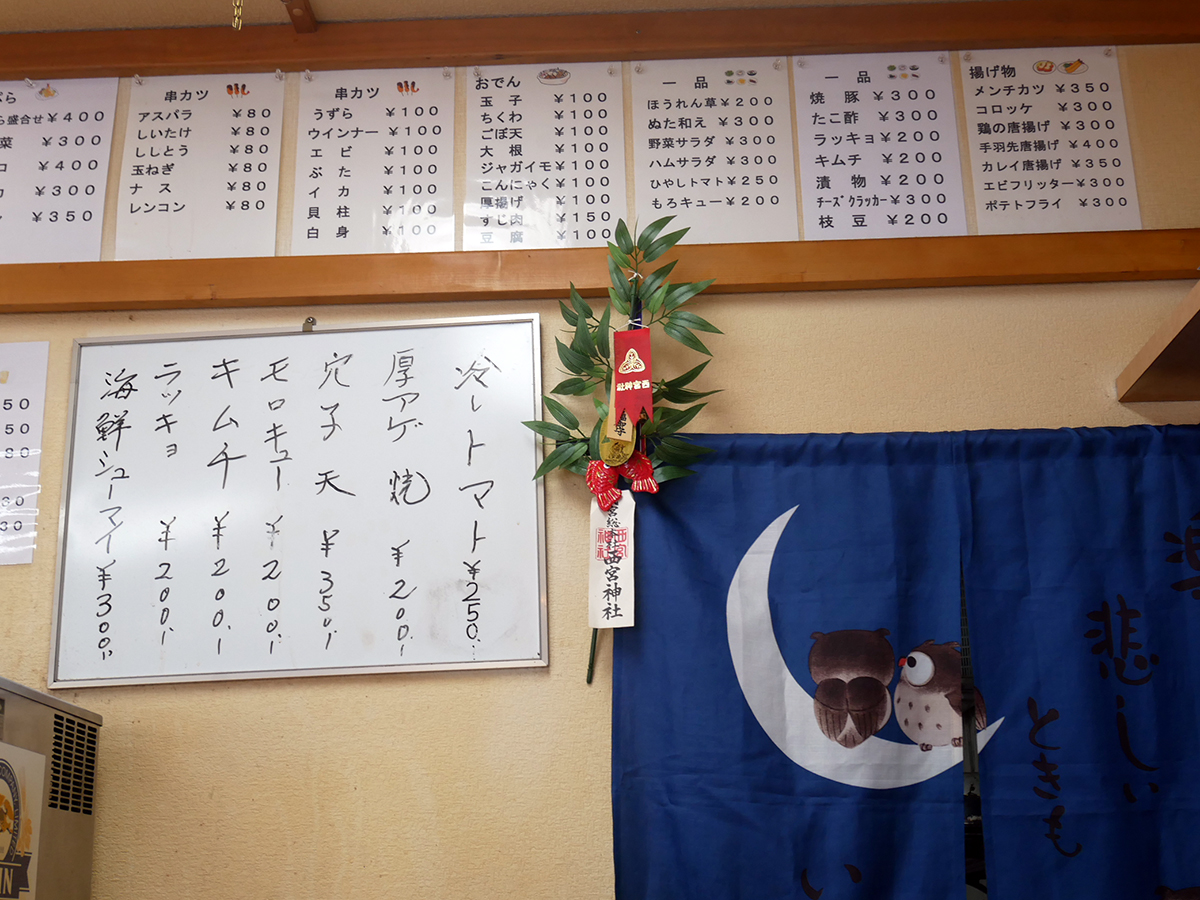 ぷら
ら盛合せ ￥４００
菜 ￥３００
コ ￥４００
カ ￥３００
￥３５０
串カツ
アスパラ ￥８０
しいたけ ￥８０
ししとう ￥８０
玉ねぎ ￥８０
ナス ￥８０
レンコン ￥８０
串カツ
うずら ￥１００
ウインナー ￥１００
エビ ￥１００
ぶた ￥１００
イカ ￥１００
貝柱 ￥１００
白身 ￥１００
おでん
玉子 ￥１００
ちくわ ￥１００
ごぼ天 ￥１００
大根 ￥１００
ジャガイモ ￥１００
こんにゃく ￥１００
厚揚げ ￥１００
すじ肉 ￥１５０
豆腐 ￥１００
一品
ほうれん草 ￥２００
ぬた和え ￥３００
野菜サラダ ￥３００
ハムサラダ ￥３００
ひやしトマト ￥２５０
もろキュー ￥２００
一品
焼豚 ￥３００
たこ酢 ￥３００
ラッキョ ￥２００
キムチ ￥２００
漬物 ￥２００
チーズクラッカー ￥３００
枝豆 ￥２００
揚げ物
メンチカツ ￥３５０
コロッケ ￥３００
鶏の唐揚げ ￥３００
手羽先唐揚げ ￥４００
カレイ唐揚げ ￥３５０
エビフリッター ￥３００
ポテトフライ ￥３００
冷しトマト ￥250.
厚アゲ焼 ￥200.
穴子天 ￥350.
モロキュー ￥200.
キムチ ￥200.
ラッキョ ￥200.
海鮮シューマイ ￥300.
50
50
80
30
30
西宮神社
西宮神社
西宮神社
悲しい
ときも
い